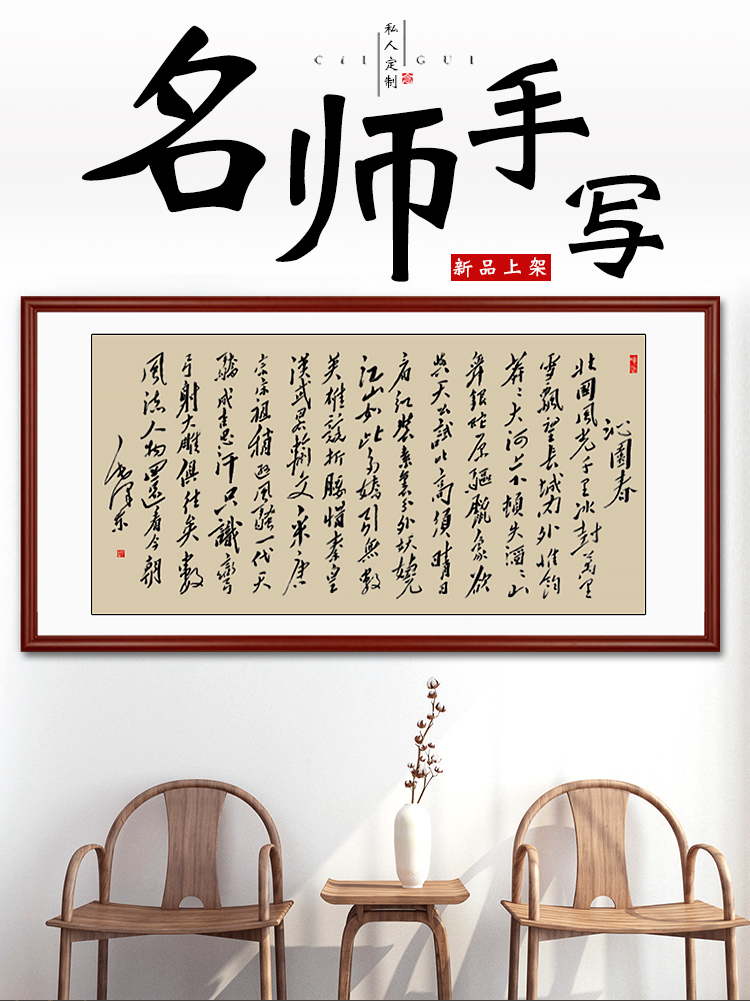 私人定制
CAI GUI
名师手写
新品上架
沁園春
北國風光千里冰封萬里
雪飄望長城內外惟餘
莽々大河上下頓失滔々山
舞銀蛇原驅臘象欲
與天公試比高須晴日
看紅裝素裹分外妖嬈
江山如此多嬌引無數
英雄競折腰惜秦皇
漢武略輸文采唐
宗宋祖稍遜風騷一代天
驕成吉思汗只識彎
弓射大雕俱往矣數
風流人物還看今朝
毛澤東